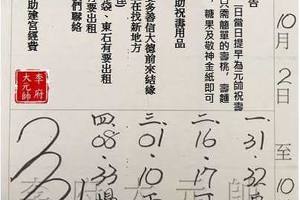 10月2日至10
告
日當日提早為元帥祝壽
只需簡單的壽桃,壽麵
,糖果及敬神金紙即可
助祝書用品
多善信大德前來結緣
在找新地方
袋、東石有要出租
有要出租
們聯絡
助建宮經費
李府大元帥
一.31.32
二.16.17
三.01.10
四.08.33